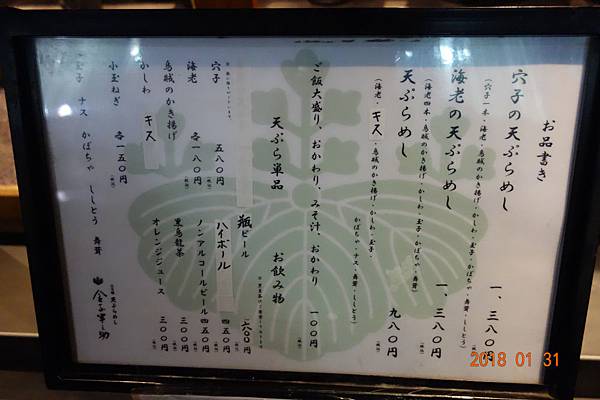 お品書き
穴子の天ぷらめし 一、三八〇円(税込)
(穴子一本・海老・烏賊のかき揚げ・かしわ・玉子・かぼちゃ・舞茸・ししとう)
海老の天ぷらめし 一、三八〇円(税込)
(海老四本・烏賊のかき揚げ・かしわ・玉子・かぼちゃ・舞茸・ししとう)
天ぷらめし 九八〇円(税込)
(海老・キス・烏賊のかき揚げ・かしわ・玉子・
かぼちゃ・ナス・舞茸・ししとう)
ご飯大盛り、おかわり、みそ汁、おかわり 一〇〇円(税込)
天ぷら単品
穴子 五八〇円(税込)
海老
烏賊のかき揚げ 各一八〇円(税込)
かしわ
キス
小玉ねぎ 各一五〇円(税込)
玉子 ナス かぼちゃ ししとう 舞茸
お飲み物
瓶ビール 六〇〇円(税込)
ハイボール 四五〇円(税込)
ノンアルコールビール 四五〇円(税込)
黒烏龍茶 三〇〇円(税込)
オレンジジュース 三〇〇円(税込)
天ぷらめし
金子半之助
2018 01 31